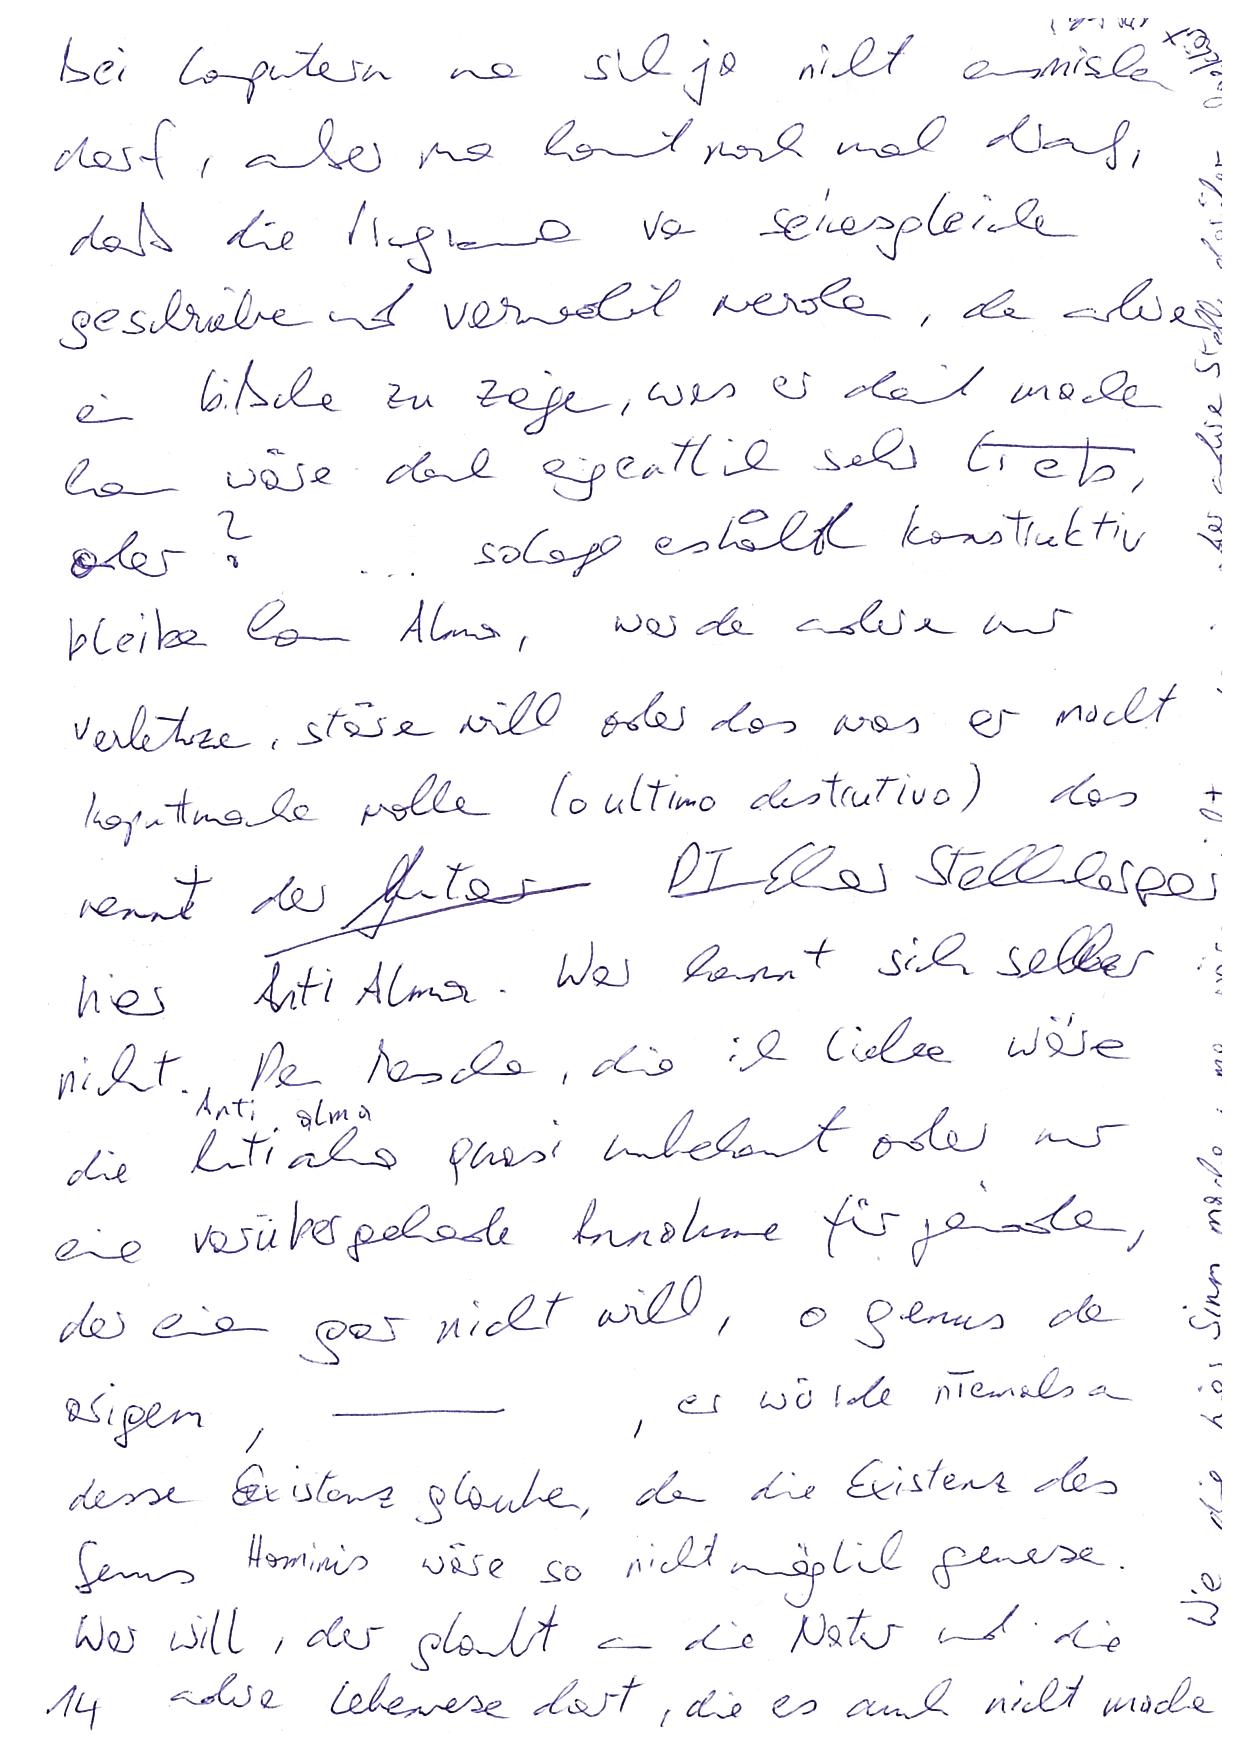 bei Computern man sich ja nicht einmischen
darf, aber man kommt noch mal drauf,
daß die Programme von seinesgleichen
geschrieben und verwaltet werden, den anderen
ein bißchen zu zeigen, was er damit machen
kann wäre doch eigentlich sehr lieb,
oder? ... solange es halt konstruktiv
bleiben kann Alma, wer den anderen nur
verletzen, stören will oder das was er macht
kaputtmachen wolle (o ultimo destrutivo) das
nennt der Autor DI Elmar Stelnberger
hier Anti Alma. Wer kennt sich selber
nicht. Den Menschen, die ich liebe wäre
Anti alma
die Anti alma quasi unbekannt oder nur
eine vorübergehende Annahme für jemanden,
der einen gar nicht will, o genus de
origem, , er würde niemals an
dessen Existenz glauben, denn die Existenz des
Genus Hominis wäre so nicht möglich gewesen.
Wer will, der glaubt an die Natur und die
14 andere Lebewesen dort, die es auch nicht machen
Wie die hier Sinn machen, man
der andere Stellen darüber